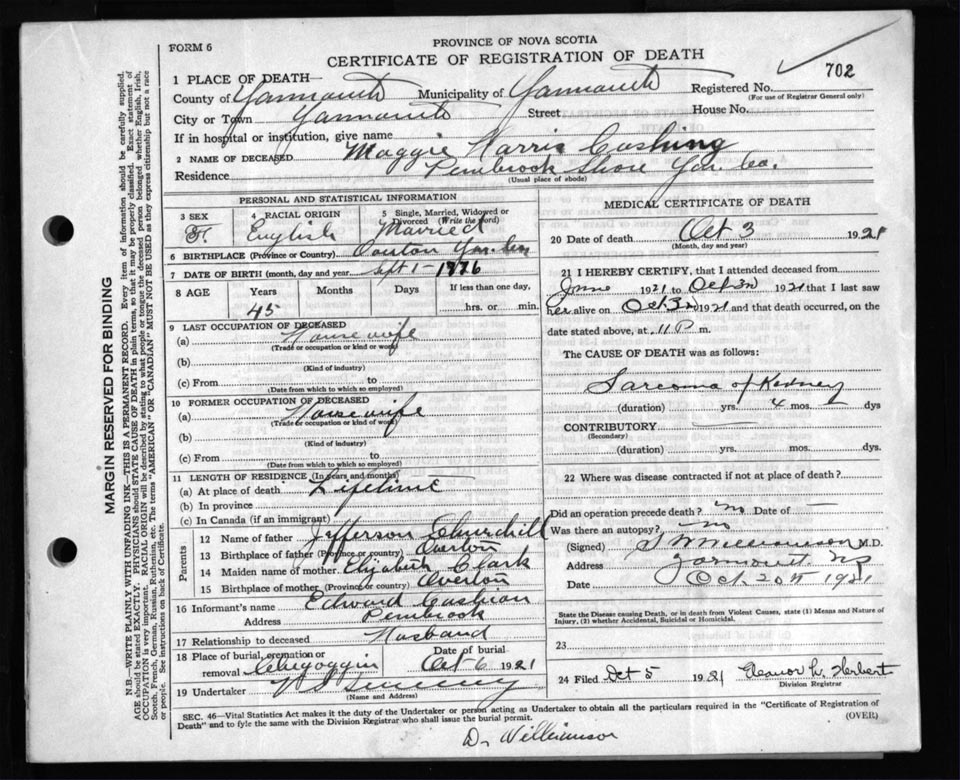 FORM 6
PROVINCE OF NOVA SCOTIA
CERTIFICATE OF REGISTRATION OF DEATH
702
1 PLACE OF DEATH—
County of Yarmouth Municipality of Yarmouth Registered No.
(For use of Registrar General only)
City or Town Yarmouth Street House No.
If in hospital or institution, give name
2 NAME OF DECEASED Maggie Harris Cushing
Residence Pembrook Shore Yar. Co.
(Usual place of abode)
PERSONAL AND STATISTICAL INFORMATION
3 SEX 4 RACIAL ORIGIN 5 Single, Married, Widowed or Divorced (Write the word)
F. English Married
6 BIRTHPLACE (Province or Country)
7 DATE OF BIRTH (month, day and year) Sept 1 - 1876
8 AGE Years Months Days If less than one day,
45 hrs. or min.
9 LAST OCCUPATION OF DECEASED
(a) Housewife
(Trade or occupation or kind or work)
(b)
(Kind of industry)
(c) From to
(Date from which to which so employed)
10 FORMER OCCUPATION OF DECEASED
(a) Housewife
(Trade or occupation or kind of work)
(b)
(Kind of industry)
(c) From to
(Date from which to which so employed)
11 LENGTH OF RESIDENCE (In years and months)
(a) At place of death Lifetime
(b) In province
(c) In Canada (if an immigrant)
Parents
12 Name of father Jefferson Churchill
13 Birthplace of father (Province or country) Overton
14 Maiden name of mother Elizabeth Clark
15 Birthplace of mother (Province or country) Overton
16 Informant's name Edward Cushion
Address Pembrook
17 Relationship to deceased Husband
18 Place of burial, cremation or removal Chegoggin Date of burial Oct 6 1921
19 Undertaker Sweeney
(Name and Address)
MEDICAL CERTIFICATE OF DEATH
20 Date of death Oct 3 1921
(Month, day and year)
21 I HEREBY CERTIFY, that I attended deceased from
June 1921 to Oct 3rd 1921 that I last saw
her alive on Oct 3rd 1921 and that death occurred, on the
date stated above, at 11 P. m.
The CAUSE OF DEATH was as follows:
Sarcoma of Kidney
(duration) yrs. 4 mos. — dys
CONTRIBUTORY
(Secondary)
(duration) yrs. mos. dys.
22 Where was disease contracted if not at place of death?
Did an operation precede death? no Date of —
Was there an autopsy? no
(Signed) Williamson M.D.
Address Yarmouth N.S.
Date Oct. 20th 1921
State the Disease causing Death, or in death from Violent Causes, state (1) Means and Nature of Injury, (2) whether Accidental, Suicidal or Homicidal.
23
24 Filed Oct 5 1921 Eleanor L. Herbert
Division Registrar
SEC. 46—Vital Statistics Act makes it the duty of the Undertaker or person acting as Undertaker to obtain all the particulars required in the "Certificate of Registration of
Death" and to fyle the same with the Division Registrar who shall issue the burial permit.
(OVER)
Dr Williamson
MARGIN RESERVED FOR BINDING
N.B.—WRITE PLAINLY WITH UNFADING INK—THIS IS A PERMANENT RECORD. Every item of information should be carefully supplied.
AGE should be stated EXACTLY. PHYSICIANS should STATE CAUSE OF DEATH in plain terms, so that it may be properly classified. Exact statement of
OCCUPATION is very important. RACIAL ORIGIN will be described by stating to what people or tongue the deceased person belonged whether English, Irish,
Scotch, French, German, Russian, Ruthenian, etc. The terms "AMERICAN" or "CANADIAN" MUST NOT BE USED as they express citizenship but not a race
or people. See instructions on back of Certificate.